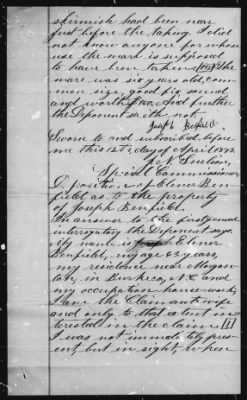 skirmish had been near
just before the taking. I did
not know anyone for whose
use the mare is supposed
to have been taken. The
mare was six years old, com
mon size, good, pig, sound
and worth $120. And further
the Deponent saith not.
Joseph Benfield
Sworn to and subscribed before
me this 12th day of April 1873.
Special Commissioner
Deposition of Elener Ben
field as to the property
of Joseph Benfield.
In answer to the first general
interrogatory the Deponent says,
My name is Elener
Benfield, my age 63 years,
my residence near Morgan
ton, in Burke Co, N.C. and
my occupation house-work,
I am the Claimant's wife
and only to that extent in
terested in the claim III
I was not immediately pres
ent, but in sight when